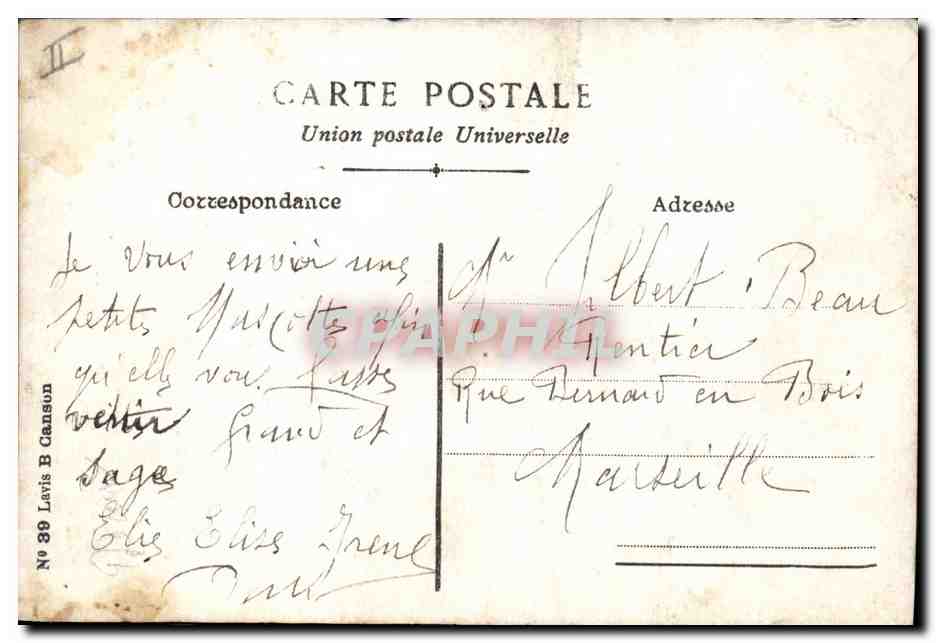 II
CARTE POSTALE
Union postale Universelle
Correspondance
Je vous envoie une
petite Mascotte afin
qu'elle vous fasse
venir grand et
sage
Elie Elise Irene
Adresse
Mr Gilbert Beau
Rentier
Rue Bernard en Bois
Marseille
No 39 Lavis B Canson
CPAPHIL